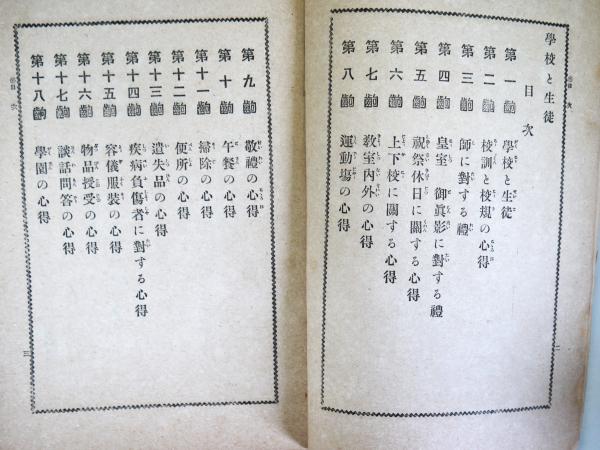 學校と生徒
目次
第一齣 學校と生徒
第二齣 校訓と校規の心得
第三齣 師に對する禮
第四齣 皇室 御眞影に對する禮
第五齣 祝祭休日に關する心得
第六齣 上下校に關する心得
第七齣 敎室內外の心得
第八齣 運動場の心得
目次
一
第九齣 敬禮の心得
第十齣 午餐の心得
第十一齣 掃除の心得
第十二齣 便所の心得
第十三齣 遺失品の心得
第十四齣 疾病負傷者に對する心得
第十五齣 容儀服裝の心得
第十六齣 物品授受の心得
第十七齣 談話問答の心得
第十八齣 學園の心得
目次
三